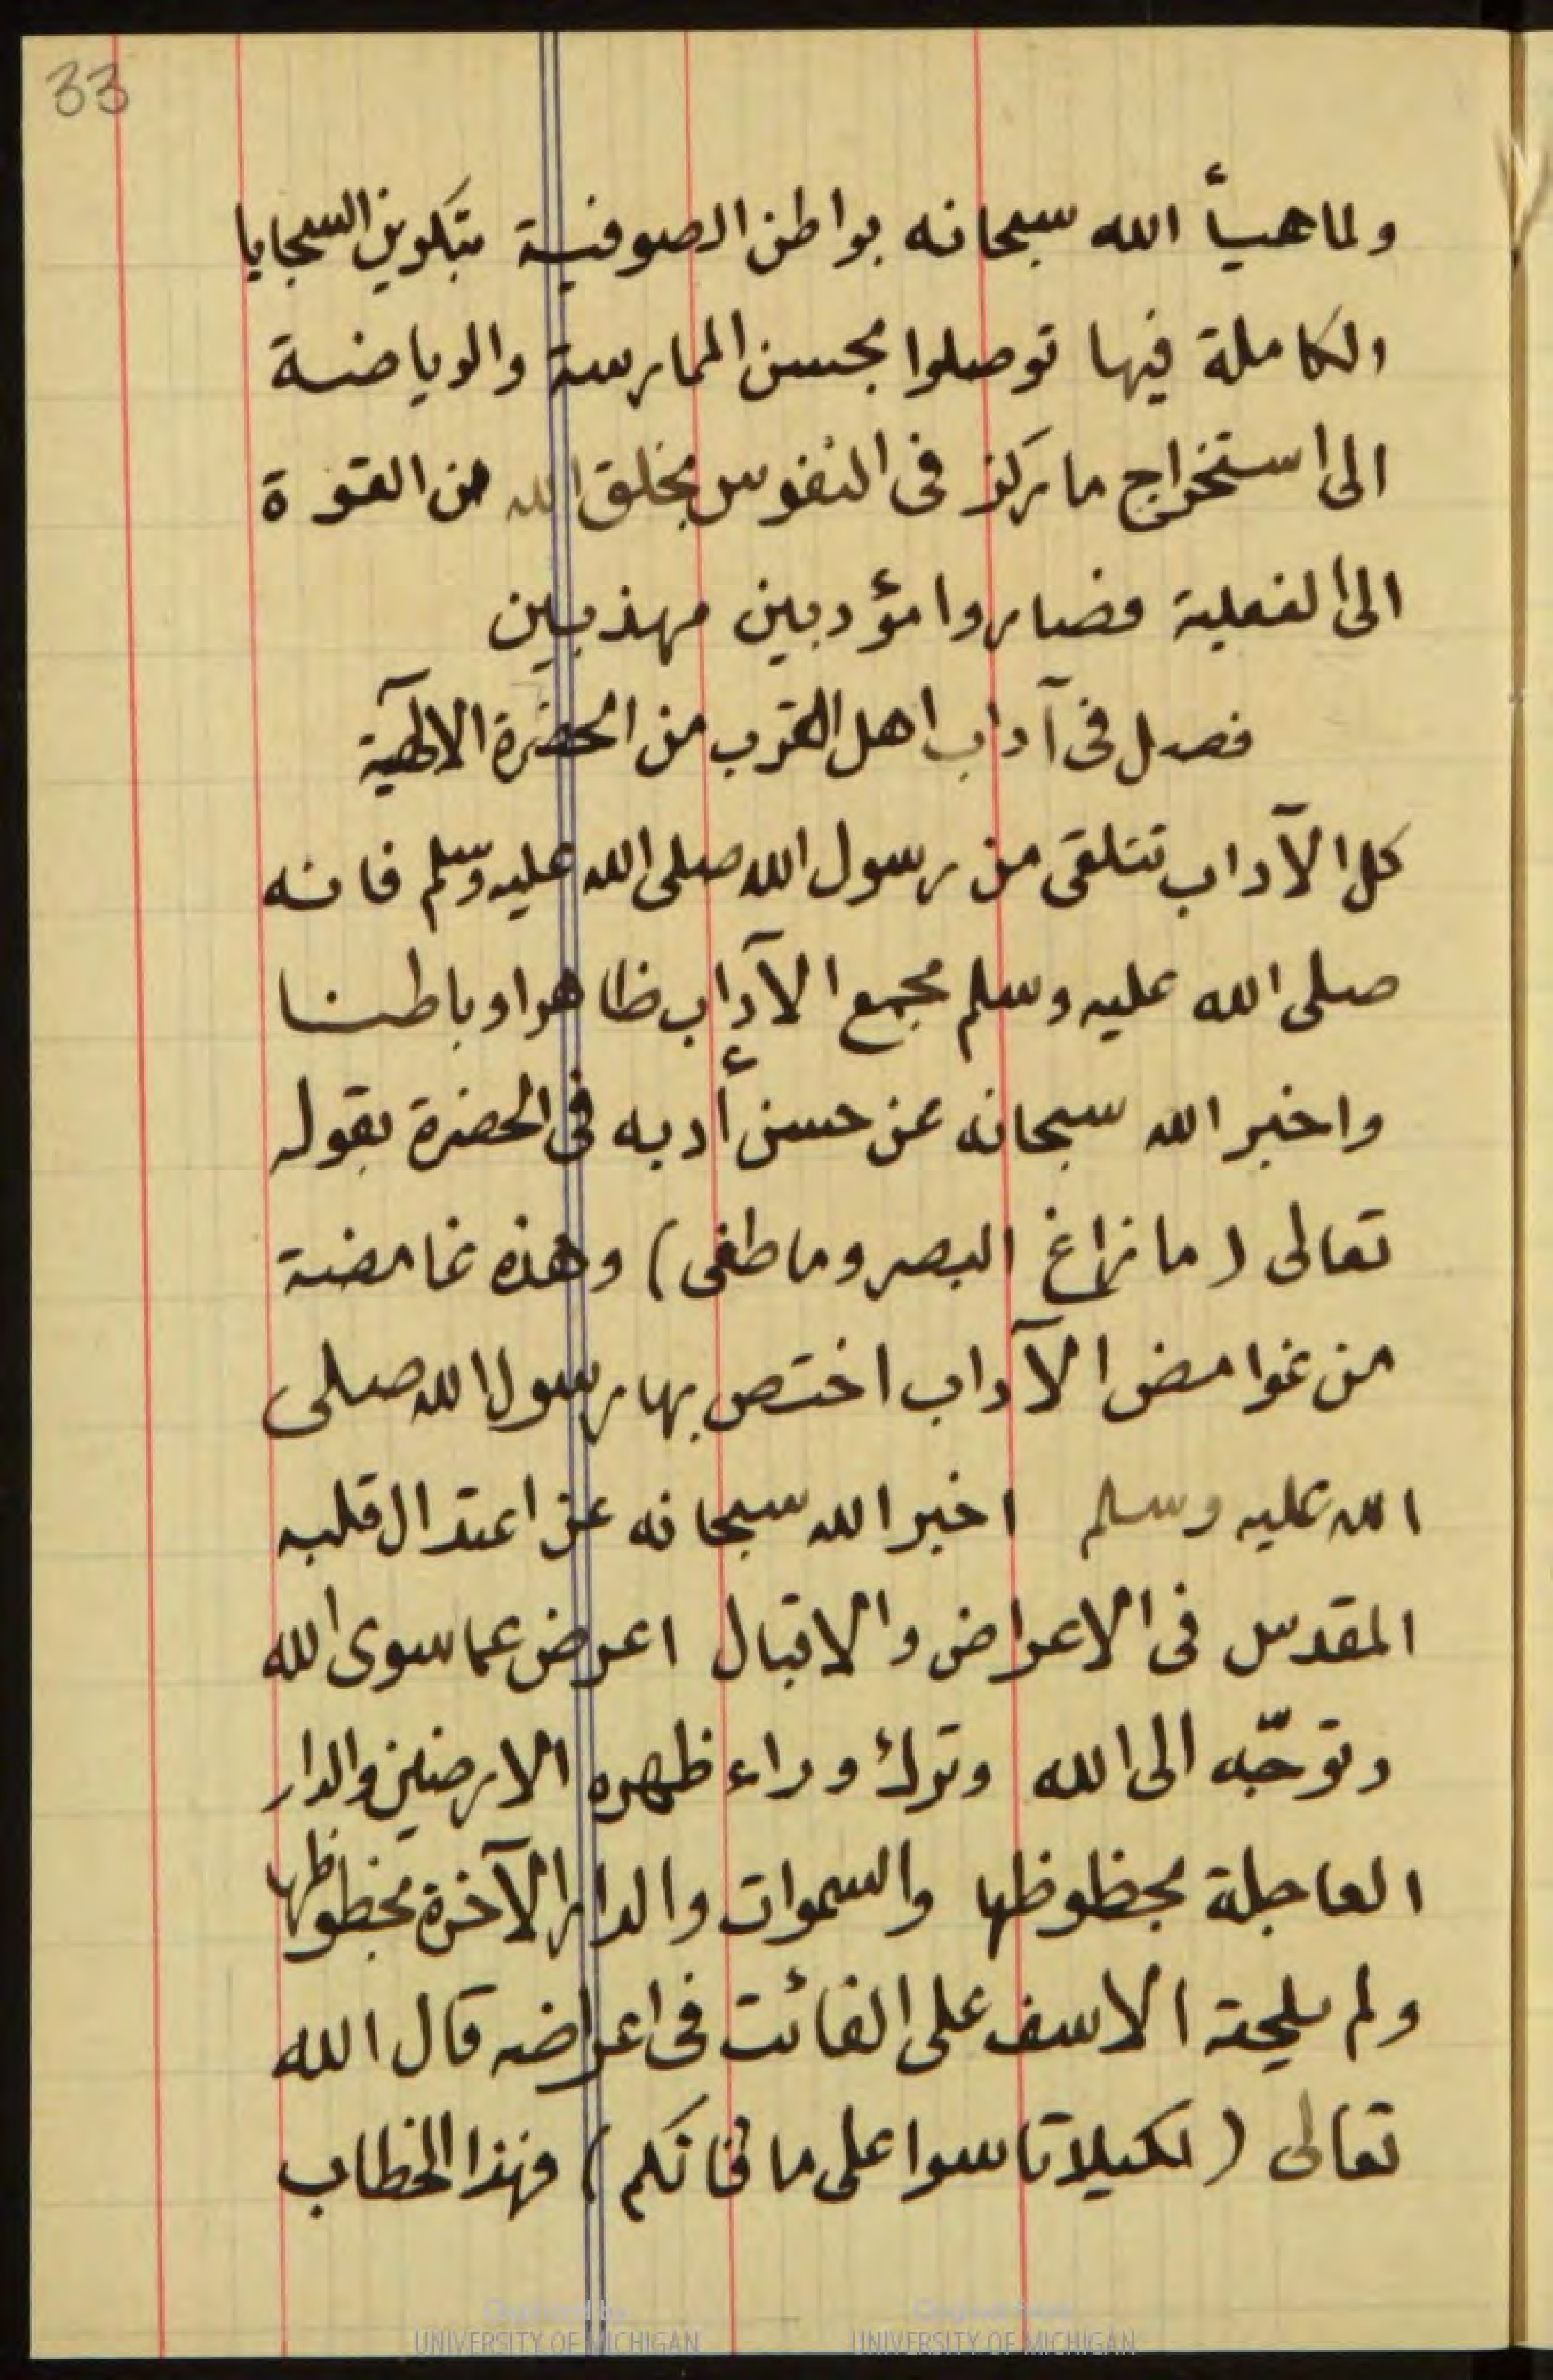 33
ولما هيأ الله سبحانه بواطن الصوفية بتكوين السجايا
الكاملة فيها توصلوا بحسن الممارسة والرياضة
الى استخراج ما ركز في النفوس بخلق الله من القوة
الى الفعلية فصاروا مؤدبين مهذبين
فصل في آداب اهل القرب من الحضرة الالٓهية
كل الآداب تتلقى من رسول الله صلى الله عليه وسلم فانه
صلى الله عليه وسلم مجمع الآداب ظاهرا وباطنا
واخبر الله سبحانه عن حسن أدبه في الحضرة بقوله
تعالى (ما زاغ البصر وما طغى) وهذه غامضة
من غوامض الآداب اختص بها رسول الله صلى
الله عليه وسلم اخبر الله سبحانه عن اعتدال قلبه
المقدس في الاعراض والاقبال اعرض عما سوى الله
وتوجّه الى الله وترك وراء ظهره الارضين والدار
العاجلة بحظوظها والسموات والدار الآخرة بحظوظها
ولم يلحقه الاسف على الفائت في اعراضه قال الله
تعالى (لكيلا تاسوا على ما فاتكم) فهذا الخطاب
UNIVERSITY OF MICHIGAN
UNIVERSITY OF MICHIGAN